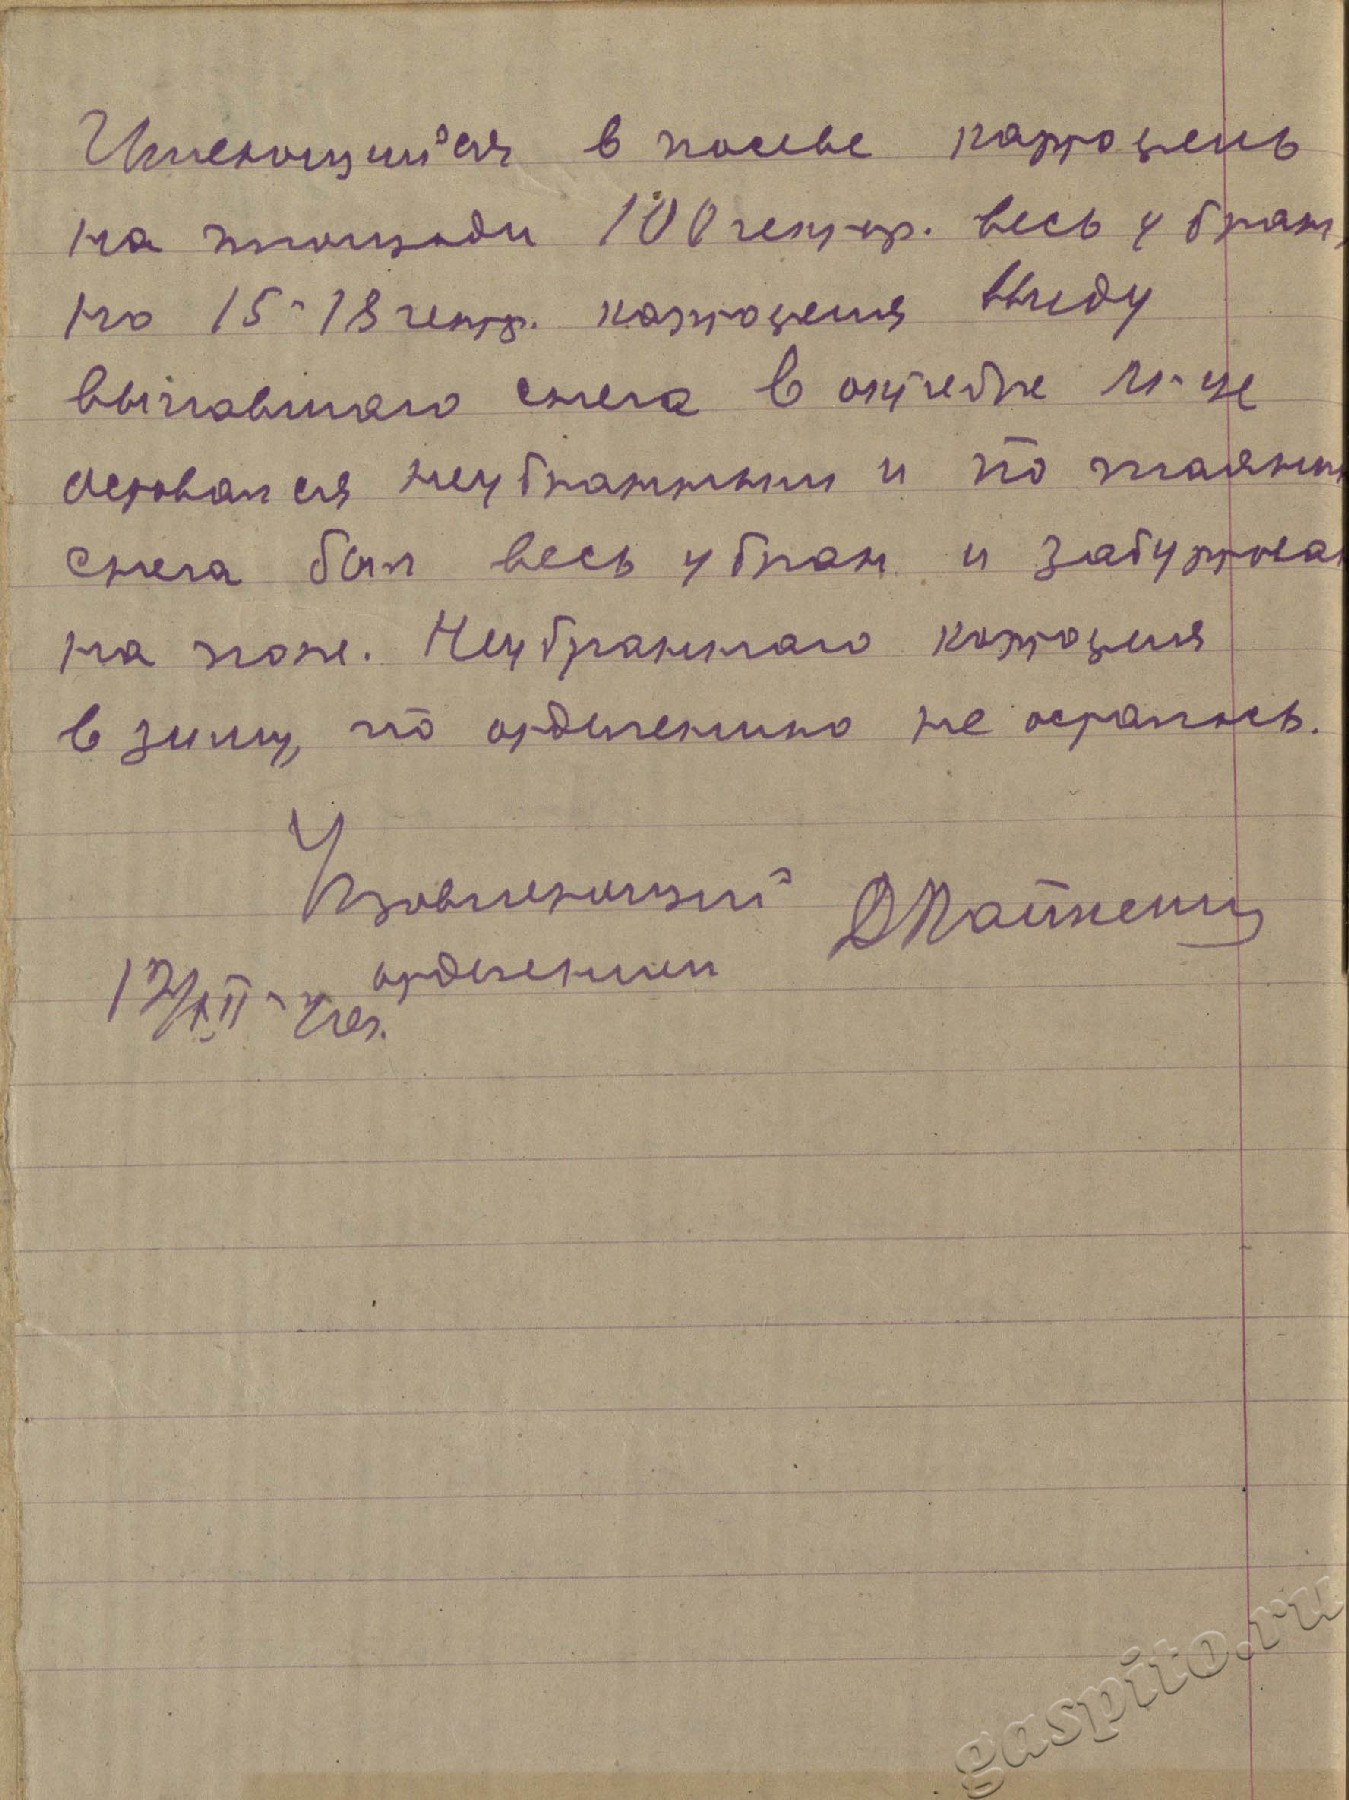 Имеющийся в посеве картофель
на площади 100 гектар. весь убран,
но 15-18 гектр. картофеля ввиду
выпавшаго снега в октебре м-це
оставался неубранным и по таянию
снега был весь убран и забуртован
на поле. Неубраннаго картофеля
в зиму, по отделению не осталось.
Управляющий
отделением
12/XII-42г.
gaspito.ru